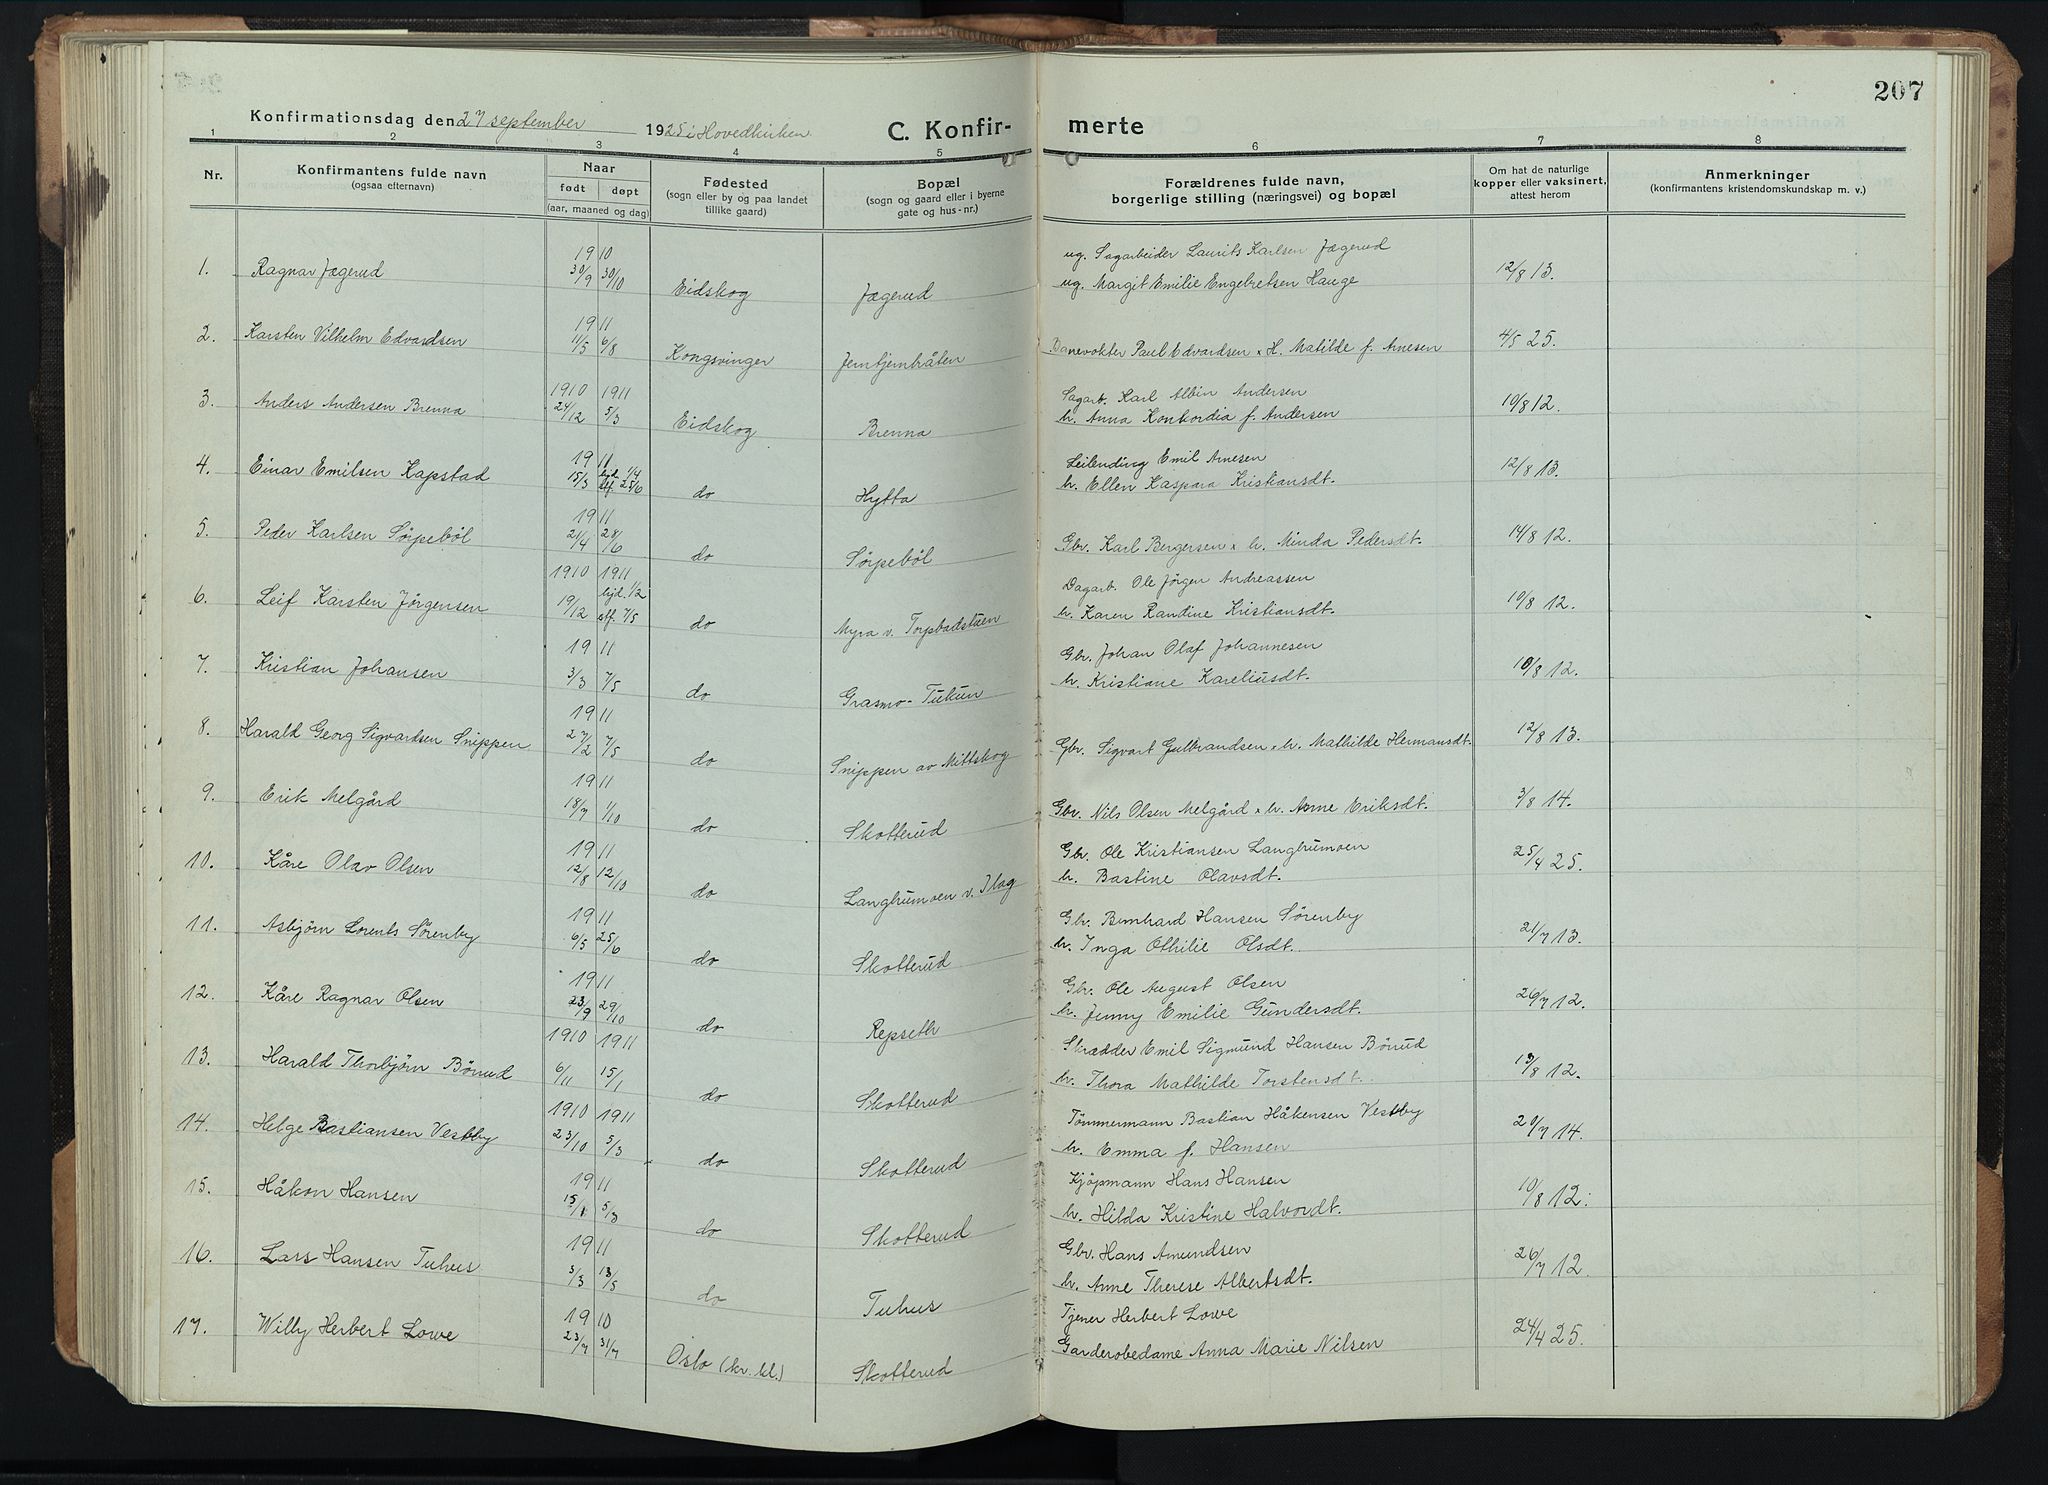 207
Konfirmationsdag den 27 september 1925 i Hovedkirken
C. Konfir- merte
1 2 3 4 5 6 7 8
Nr. Konfirmantens fulde navn (ogsaa efternavn) Naar født døpt (aar, maaned og dag) Fødested (sogn eller by og paa landet tillike gaard) Bopæl (sogn og gaard eller i byerne gate og hus-nr.) Forældrenes fulde navn, borgerlige stilling (næringsvei) og bopæl Om hat de naturlige kopper eller vaksinert, attest herom Anmerkninger (konfirmantens kristendomskundskap m. v.)
1. Ragnar Jægerud 1910 30/9 30/10 Eidskog Jægerud ug. Sagarbeider Laurits Karlsen Jægerud
ug. Margit Emilie Engebretsen Hauge 12/8 13.
2. Karsten Vilhelm Edvardsen 1911 11/5 6/8 Kongsvinger Jerntjernbråten Banevokter Paul Edvardsen x H. Matilde f. Arnesen 4/5 25.
3. Anders Andersen Brenna 1910 1911 24/12 5/3 Eidskog Brenna Sagarb. Karl Albin Andersen
h. Anna Konkordia f. Andersen 10/8 12.
4. Einar Emilsen Kapstad 1911 15/3 hjd. 1/4 stf. 25/6 do Hytta Leilending Emil Arnesen
h. Ellen Kaspara Kristiansdt. 12/8 13.
5. Peder Karlsen Sörpeböl 1911 21/4 28/6 do Sörpeböl Gbr. Karl Bergersen x h. Minda Pedersdt. 14/8 12.
6. Leif Karsten Jörgensen 1910 1911 19/12 hjd. 1/2 stf. 7/5 do Myra v. Torpbadstuen Dagarb. Ole Jörgen Andreassen
h. Karen Randine Kristiansdt. 10/8 12.
7. Kristian Johansen 1911 3/3 7/5 do Grasmo-Tukun Gbr. Johan Olaf Johannesen
h. Kristiane Kareliusdt. 10/8 12.
8. Harald Georg Sigvardsen Snippen 1911 27/2 7/5 do Snippen av Mittskog Gbr. Sigvart Gulbrandsen x h. Mathilde Hermansdt. 12/8 13.
9. Erik Melgård 1911 18/7 1/10 do Skotterud Gbr. Nils Olsen Melgård x h. Anne Eriksdt. 3/8 14.
10. Kåre Olav Olsen 1911 12/8 12/10 do Langhumoen v. Ilag Gbr. Ole Kristiansen Langhumoen
h. Bastine Olavsdt. 25/4 25.
11. Asbjörn Lorents Sörenby 1911 6/5 25/6 do Skotterud Gbr. Bernhard Hansen Sörenby
h. Inga Othilie Olsdt. 21/7 13.
12. Kåre Ragnar Olsen 1911 23/9 29/10 do Repseth Gbr. Ole August Olsen
h. Jenny Emilie Gundersdt. 26/7 12.
13. Harald Thorbjörn Bönud 1910 1911 6/11 15/1 do Skotterud Skrædder Emil Sigmund Hansen Bönud
h. Thora Mathilde Torstensdt. 13/8 12.
14. Helge Bastiansen Vestby 1910 1911 23/10 5/3 do Skotterud Tömmermann Bastian Håkensen Vestby
h. Emma f. Hansen 20/7 14.
15. Håkon Hansen 1911 15/1 5/3 do Skotterud Kjöpmann Hans Hansen
h. Hilda Kristine Halvordt. 10/8 12.
16. Lars Hansen Tuhus 1911 3/3 13/5 do Tuhus Gbr. Hans Amundsen
h. Anne Therese Albertsdt. 26/7 12.
17. Willy Herbert Lowe 1910 23/7 31/7 Oslo (kr. kl.) Skotterud Tjener Herbert Lowe
Garderobedame Anna Marie Nilsen 24/4 25.